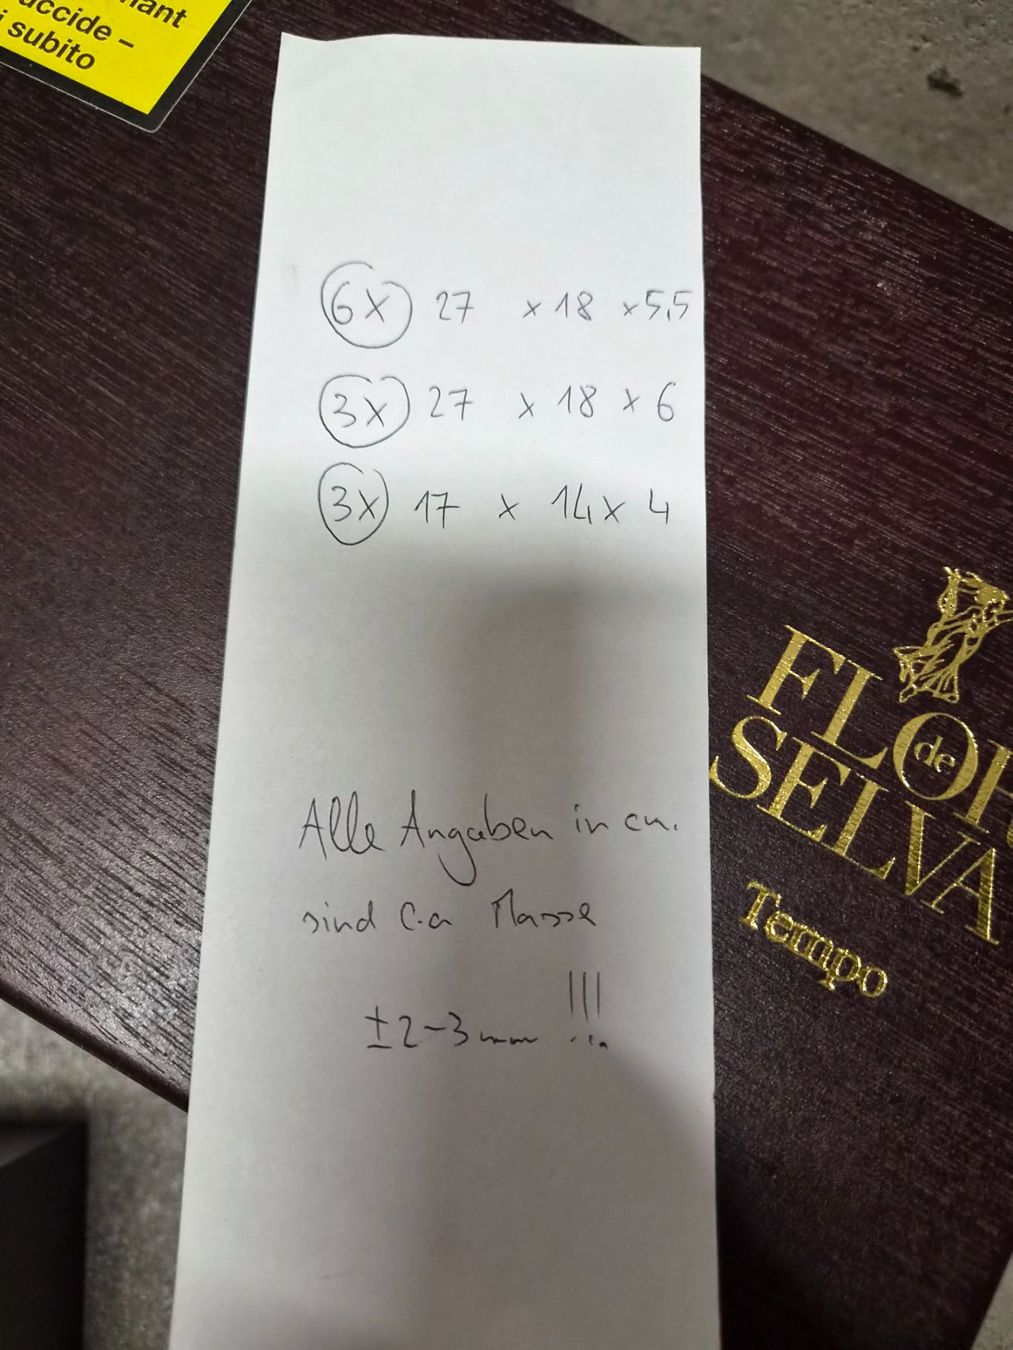 uccide –
i subito
6x 27 x 18 x 5,5
3x 27 x 18 x 6
3x 17 x 14 x 4
FLOR
de
SELVA
Tempo
Alle Angaben in cm.
sind C.a Masse
±2-3mm !!!